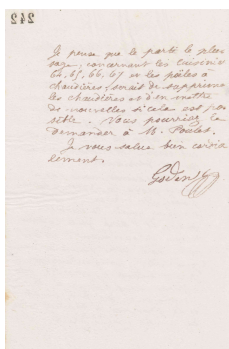 242
Je pense que le parti le plus
sage, concernant les cuisinières
64, 65, 66, 67 et les poêles à
chaudières, serait de supprimer
les chaudières et d'en mettre
de nouvelles si cela est pos
sible. Vous pourriez le
demander à M. Poulet.
Je vous salue bien cordia
lement.
Godin